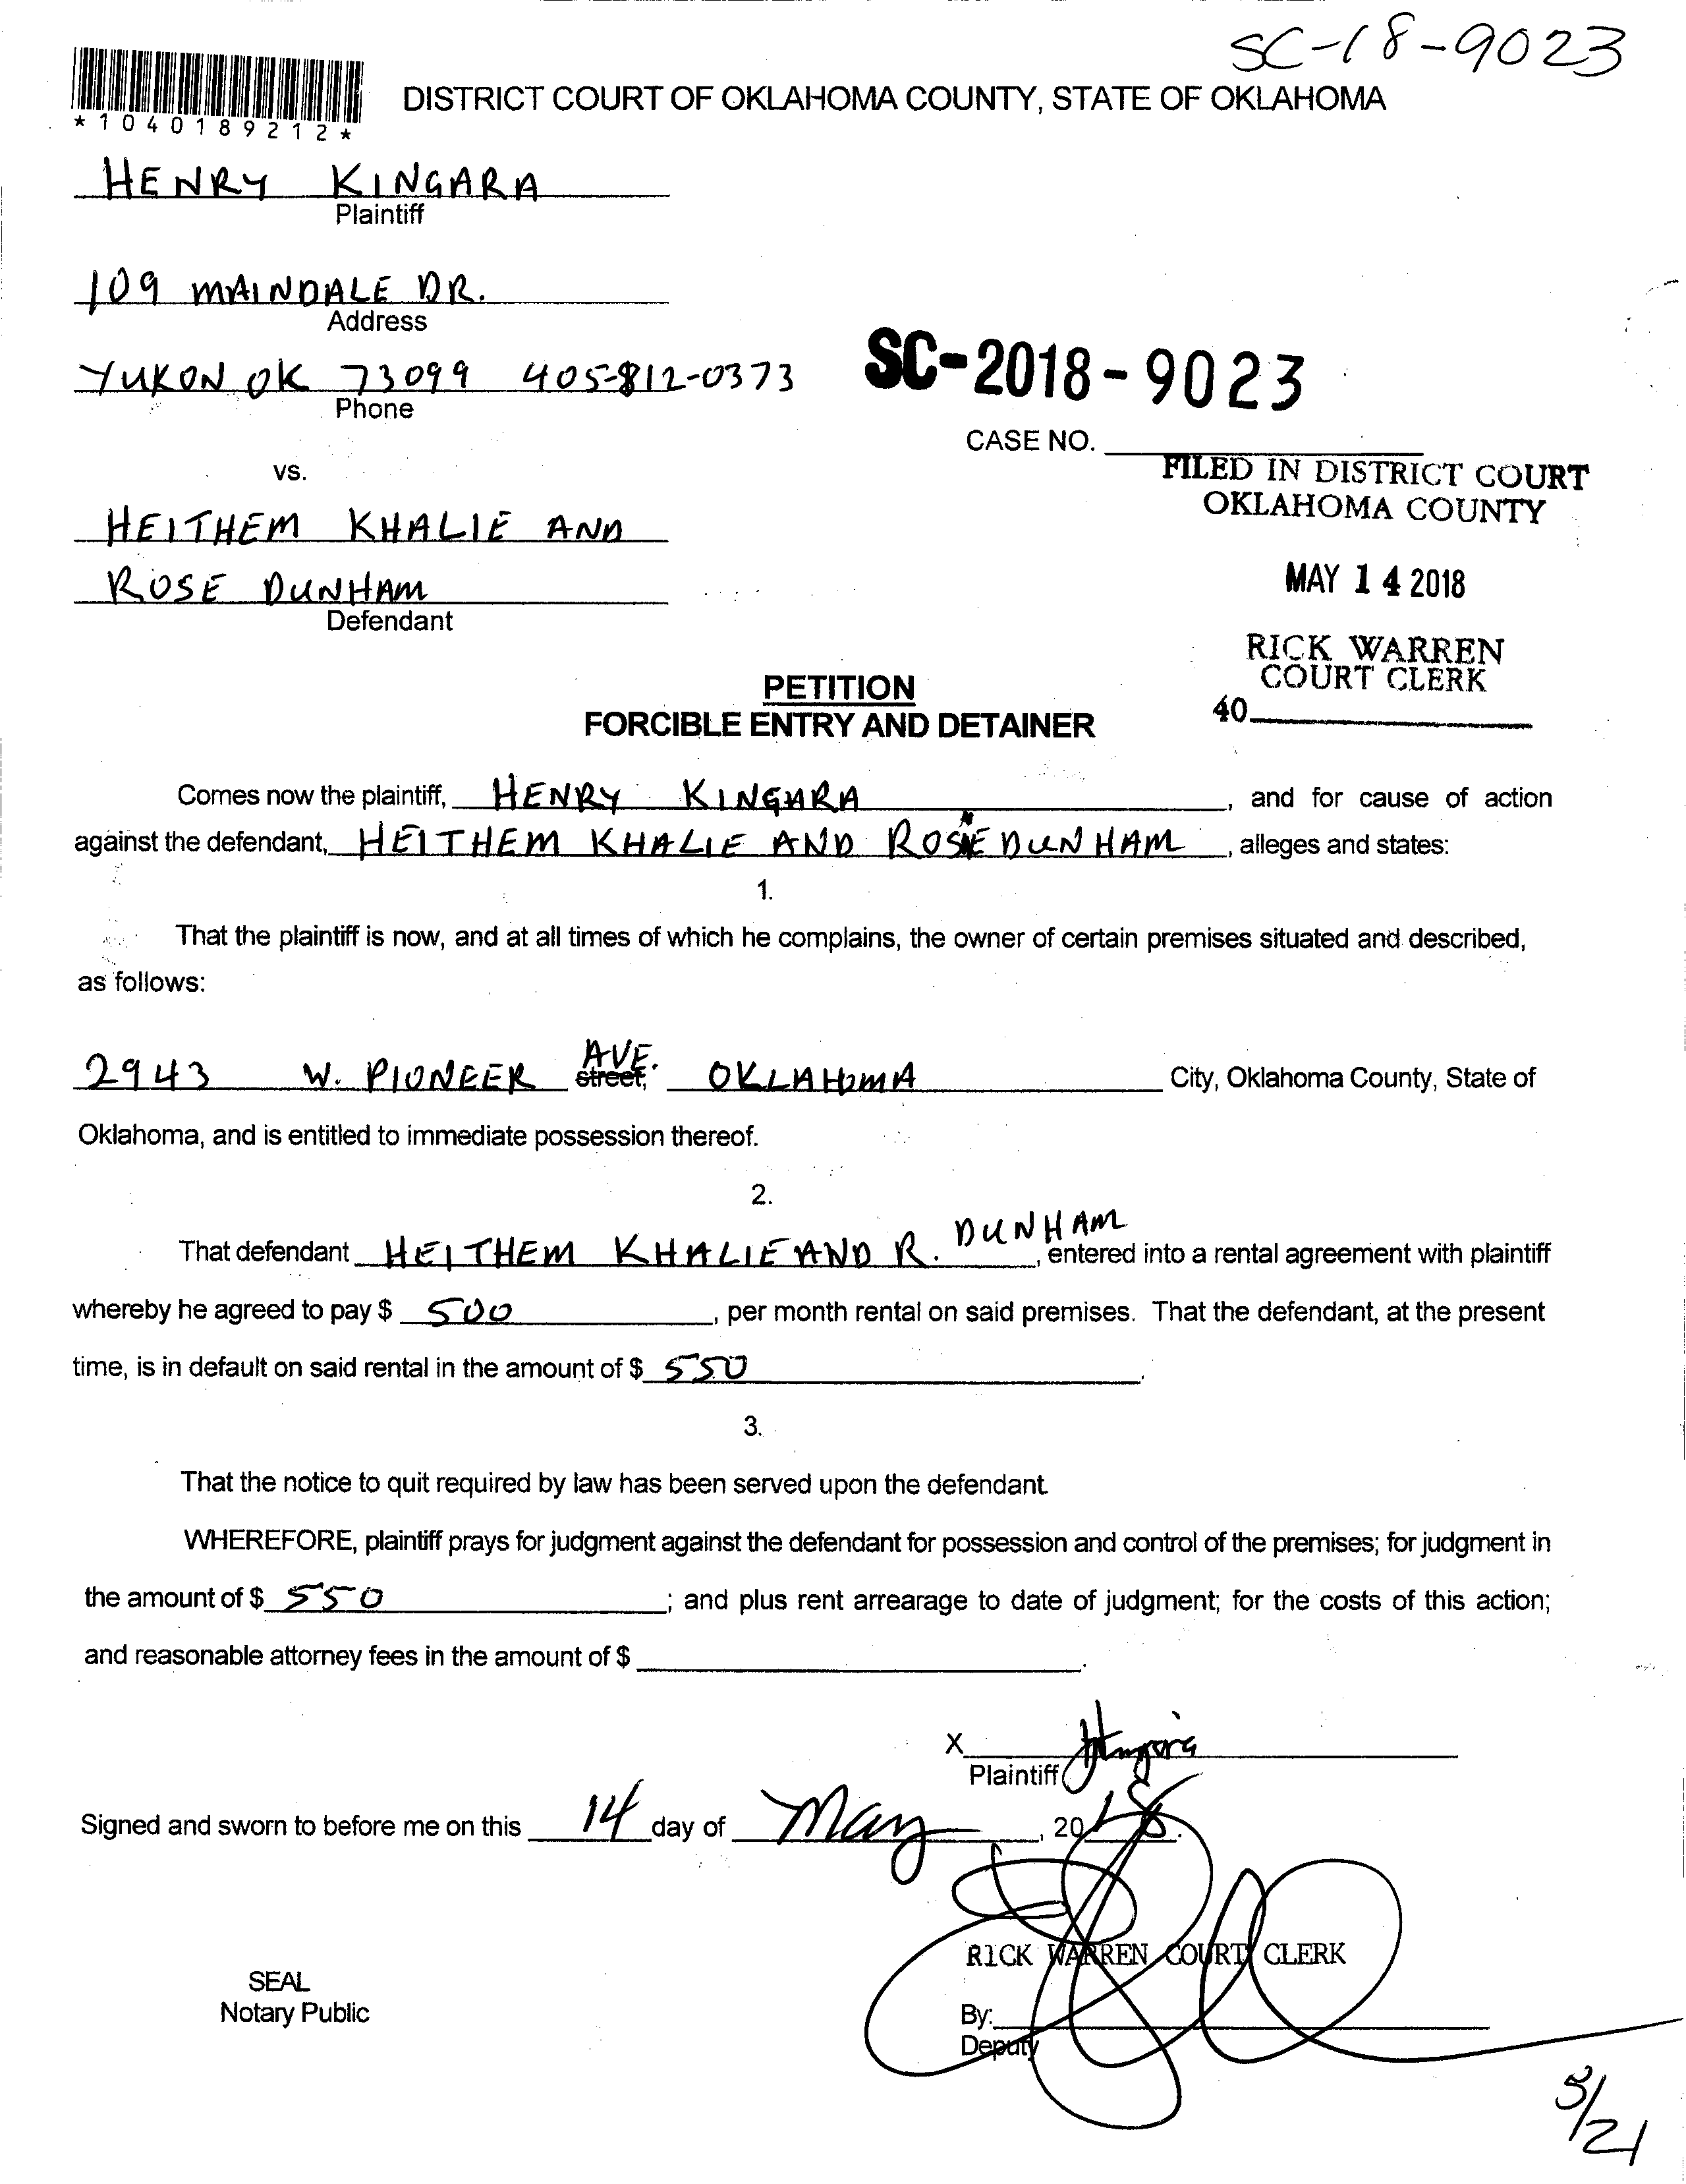 SC-18-9023
*1040189212*
DISTRICT COURT OF OKLAHOMA COUNTY, STATE OF OKLAHOMA
HENRY KINGARA
Plaintiff
109 MAINDALE DR.
Address
YUKON OK 73099 405-812-0373
Phone
SC-2018-9023
CASE NO.
vs.
FILED IN DISTRICT COURT
OKLAHOMA COUNTY
HEITHEM KHALIE AND
ROSE DUNHAM
Defendant
MAY 14 2018
RICK WARREN
COURT CLERK
40
PETITION
FORCIBLE ENTRY AND DETAINER
Comes now the plaintiff, HENRY KINGARA, and for cause of action
against the defendant, HEITHEM KHALIE AND ROSE DUNHAM, alleges and states:
1.
That the plaintiff is now, and at all times of which he complains, the owner of certain premises situated and described,
as follows:
2943 W. PIONEER AVE. street, OKLAHOMA City, Oklahoma County, State of
Oklahoma, and is entitled to immediate possession thereof.
2.
That defendant HEITHEM KHALIE AND R. DUNHAM, entered into a rental agreement with plaintiff
whereby he agreed to pay $ 500, per month rental on said premises. That the defendant, at the present
time, is in default on said rental in the amount of $ 550.
3.
That the notice to quit required by law has been served upon the defendant.
WHEREFORE, plaintiff prays for judgment against the defendant for possession and control of the premises; for judgment in
the amount of $ 550; and plus rent arrearage to date of judgment; for the costs of this action;
and reasonable attorney fees in the amount of $ .
X
Plaintiff
Signed and sworn to before me on this 14 day of May, 2018.
RICK WARREN COURT CLERK
SEAL
Notary Public
By:
Deputy
5/21